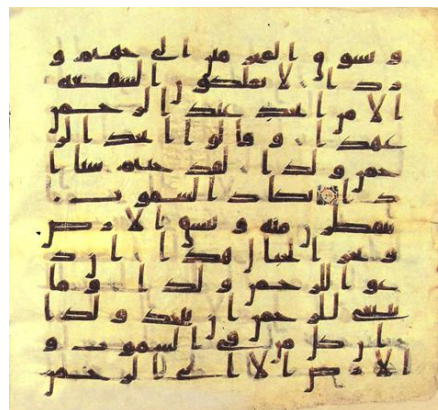 و نسوق المجرمين الى جهنم و
ردا لا يملكون الشفعه
الا من اتخذ عند الرحمن
عهدا و قالوا اتخذ الر
حمن ولدا لقد جئتم شيا ا
دا تكاد السموت
ينفطرن منه و تنشق الارض
و تخر الجبال هدا ان د
عوا للرحمن ولدا و ما
ينبغى للرحمن ان يتخذ ولدا
ان كل من فى السموت و
الارض الا اتى الرحمن